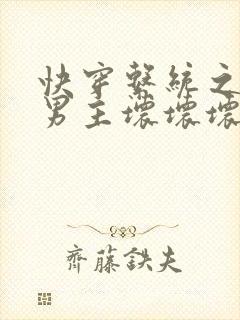 快穿系統之
男主壞壞壞
齊藤鉄夫